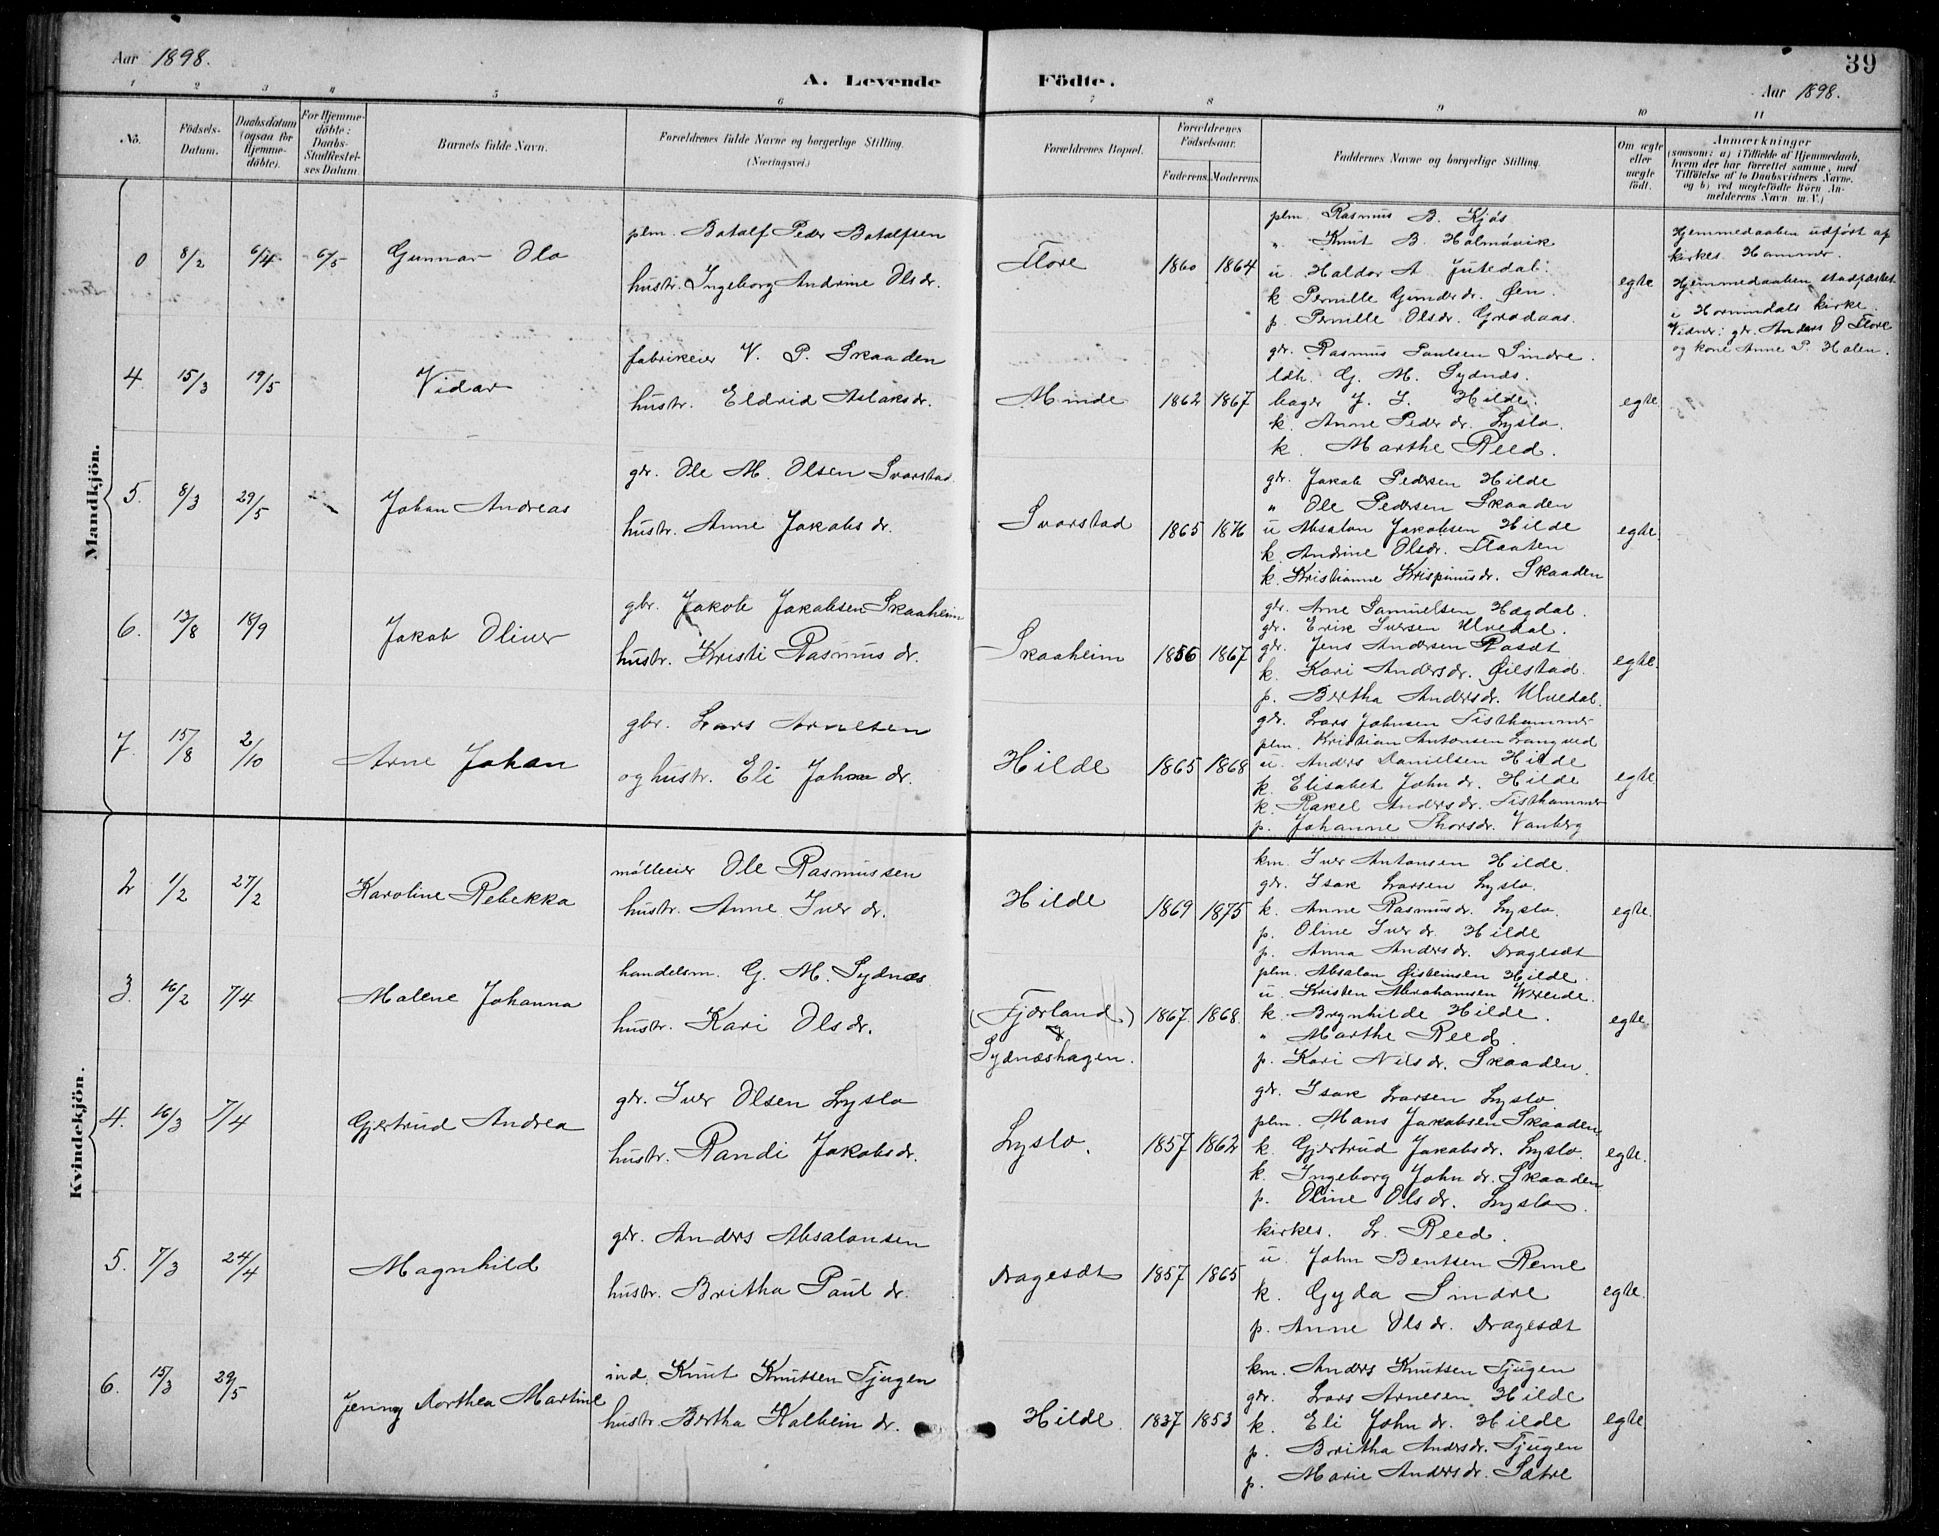 Aar 1898.
A. Levende Födte.
Aar 1898.
39
1 2 3 4 5 6 7 8 9 10 11
No.
Födsels-
Datum.
Daabsdatum
(ogsaa for
Hjemme-
döbte).
For Hjemme-
döbte:
Daabs-
Stadfæstel-
ses Datum.
Barnets fulde Navn.
Forældrenes fulde Navne og borgerlige Stilling.
(Næringsvei.)
Forældrenes Bopæl.
Forældrenes
Födselsaar.
Faderens. Moderens.
Faddernes Navne og borgerlige Stilling.
Om ægte
eller
uægte
födt.
Anmærkninger
(saasom: a) i Tilfælde af Hjemmedaab,
hvem der har forrettet samme, med
Tilföielse af to Daabsvidners Navne,
og b) ved uægtefödte Börn An-
melderens Navn m. V.)
Mandkjön.
0 8/2 6/4 6/5 Gunnar Ola
plm. Botolf Peder Botolfsen
hustr. Ingeborg Andrine Olsdr.
Flore 1860 1864
plm. Rasmus B. Kjøs
" Knut B. Holmøvik
u Haldor A. Jutedal.
k Pernille Gunderdr. Øen.
p. Pernille Olsdr. Grodaas.
egte
Hjemmedaaben udført af
kirkes. Hammer.
Hjemmedaaben stadfæstet
i Hornindals kirke
Vidner: gr. Anders O Flore
og kone Anne P. Holen.
4 15/3 19/5 Vidar
fabrikeier V. P. Skaaden
hustr. Eldrid Aslaksdr.
Minde 1862 1867
gr. Rasmus Paulsen Sindre.
ldh. G. M. Sydnæs.
bager J. I. Hilde.
k. Anne Peder dr. Lyslo.
k. Marthe Reed.
egte
5. 8/3 29/5 Johan Andreas
gr. Ole M. Olsen Svorstad.
hustr. Anne Jakobsdr.
Svorstad 1865 1876
gr. Jakob Pedersen Hilde
" Ole Pedersen Skaaden
u Absalon Jakobsen Hilde
k. Andrine Olsdr. Flaaten
k. Kristianne Krispinusdr. Skaaden
egte.
6. 13/8 18/9 Jakob Oliver
gbr. Jakob Jakobsen Skaaheim
hustr. Kristi Rasmus dr.
Skaaheim 1856 1867
gr. Arne Samuelsen Hægdal.
gr. Erik Iversen Ulvedal.
gr. Jens Andersen
k. Kari Andersdr. Øilestad.
p. Bertha Andersdr. Ulvedal.
egte.
7. 15/8 2/10 Arne Johan
gbr. Lars Arnesen
og hustr. Eli Johan dr.
Hilde 1865 1868
gr. Lars Johnsen Tisthammer
plm. Kristian Antonsen Langved
u. Anders Danielsen Hilde
k. Elisabet John dr. Hilde
k. Rakel Andersdr. Tisthammer
p. Johanne Thorsdr. Vanberg
egte
Kvindekjön.
2 1/2 27/2 Karoline Rebekka
mølleeier Ole Rasmussen
hustr. Anne Iver dr.
Hilde 1869 1875
km. Iver Antonsen Hilde.
gr. Isak Larsen Lyslo.
k. Anne Rasmusdr. Lyslo.
p. Oline Iver dr. Hilde
p. Anna Anders dr. Dragesæt
egte.
3. 16/2 7/4 Malene Johanna
handelsm. G. M. Sydnæs
hustr. Kari Olsdr.
(Fjærland)
Sydnæshagen.
1867 1868.
plm. Absalon Øisteinsen Hilde.
u. Kristen Abrahamsen Wereide.
k. Brynhilde Hilde.
" Marthe Reed.
p. Kari Nils dr. Skaaden.
egte.
4. 16/3 7/4 Gjertrud Andrea
gr. Iver Olsen Lyslo
hustr. Randi Jakobsdr.
Lyslo. 1857 1862
gr. Isak Larsen Lyslo
plm. Mons Jakobsen Skaaden
k. Gjertrud Jakobsdr. Lyslo.
k. Ingeborg John dr. Skaaden
p. Oline Ols dr. Lyslo.
egte.
5. 7/3 24/4 Magnhild
gr. Anders Absalonsen
hustr. Britha Paul dr.
Dragesæt 1857 1865
kirkes. L. Reed.
u. John Bentsen Reme
k. Gyda Sindre
p. Anne Ols dr. Dragesæt
egte.
6. 15/3 29/5 Jenny Dorthea Martine
ind. Knut Knutsen Tjugen
hustr. Bertha Kolbein dr.
Hilde. 1837 1853
km. Anders Knutsen Tjugen
gr. Lars Arnesen Hilde
k. Eli John dr. Hilde
p. Britha Andersdr. Tjugen
p. Marie Anders dr. Sætre
egte.